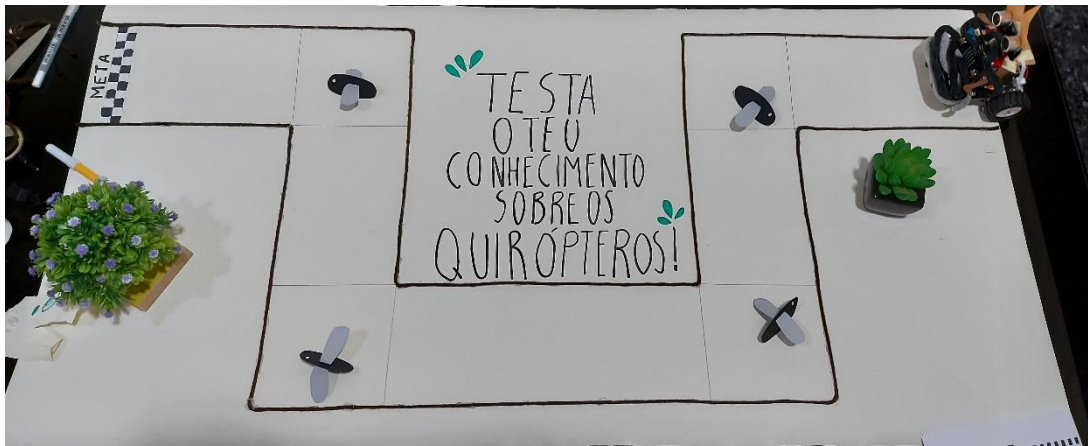 META
TESTA
O TEU
CONHECIMENTO
SOBRE OS
QUIRÓPTEROS!